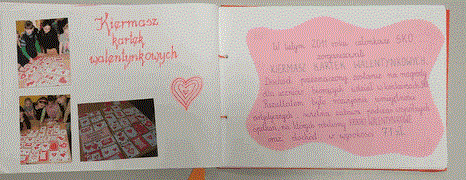 Kiermasz
kartek
walentynkowych
W lutym 2011 roku członkowie SKO
zorganizowali
KIERMASZ KARTEK WALENTYNKOWYCH.
Dochód przeznaczony zostanie na nagrody
dla uczniów biorących udział w konkursach.
Rezultatem było nabycie umiejętności
plastycznych, wielka zabawa
oraz dochód w wysokości 77 zł.